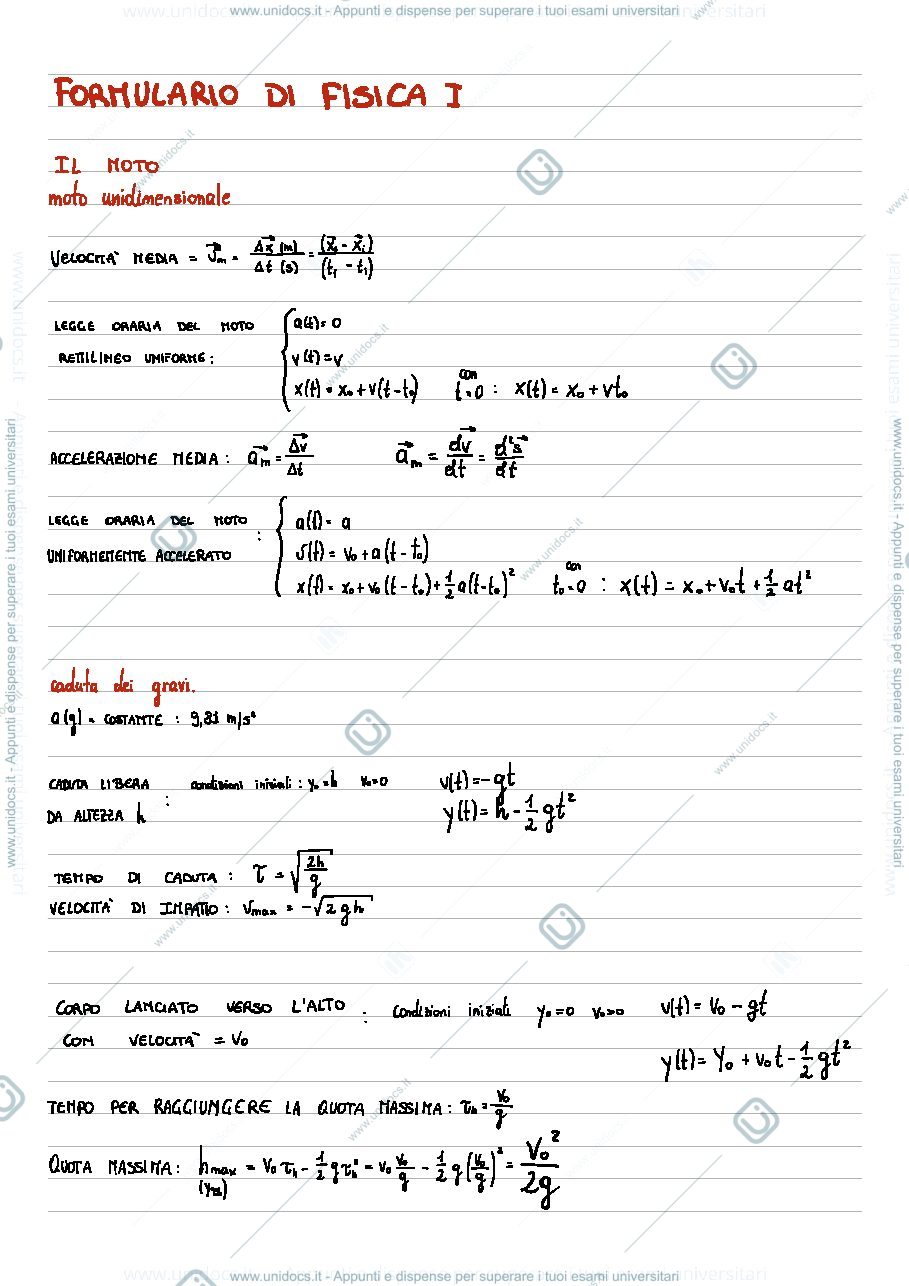 www.unidocs.it - Appunti e dispense per superare i tuoi esami universitari
FORMULARIO DI FISICA I
IL MOTO
moto unidimensionale
VELOCITÀ MEDIA = v⃗m = Δx⃗ (m) / Δt (s) = (x⃗f - x⃗i) / (tf - ti)
LEGGE ORARIA DEL MOTO RETTILINEO UNIFORME: { a(t) = 0
v(t) = v
x(t) = x₀ + v(t - t₀) con t = 0 : x(t) = x₀ + vt₀
ACCELERAZIONE MEDIA: a⃗m = Δv⃗ / Δt a⃗m = dv⃗ / dt = d²s⃗ / dt
LEGGE ORARIA DEL MOTO UNIFORMEMENTE ACCELERATO : { a(t) = a
v(t) = v₀ + a(t - t₀)
x(t) = x₀ + v₀(t - t₀) + 1/2 a(t - t₀)² con t₀ = 0 : x(t) = x₀ + v₀t + 1/2 at²
caduta dei gravi.
a(g) = COSTANTE : 9,81 m/s²
CADUTA LIBERA DA ALTEZZA h : condizioni iniziali : y₀ = h v₀ = 0 v(t) = -gt
y(t) = h - 1/2 gt²
TEMPO DI CADUTA : τ = √(2h/g)
VELOCITÀ DI IMPATTO : vmax = -√(2gh)
CORPO LANCIATO VERSO L'ALTO : condizioni iniziali y₀ = 0 v₀ > 0 v(t) = v₀ - gt
CON VELOCITÀ = v₀
y(t) = y₀ + v₀t - 1/2 gt²
TEMPO PER RAGGIUNGERE LA QUOTA MASSIMA : τh = v₀/g
QUOTA MASSIMA : hmax = v₀τh - 1/2 gτh² = v₀ v₀/g - 1/2 g(v₀/g)² = v₀²/2g
www.unidocs.it - Appunti e dispense per superare i tuoi esami universitari